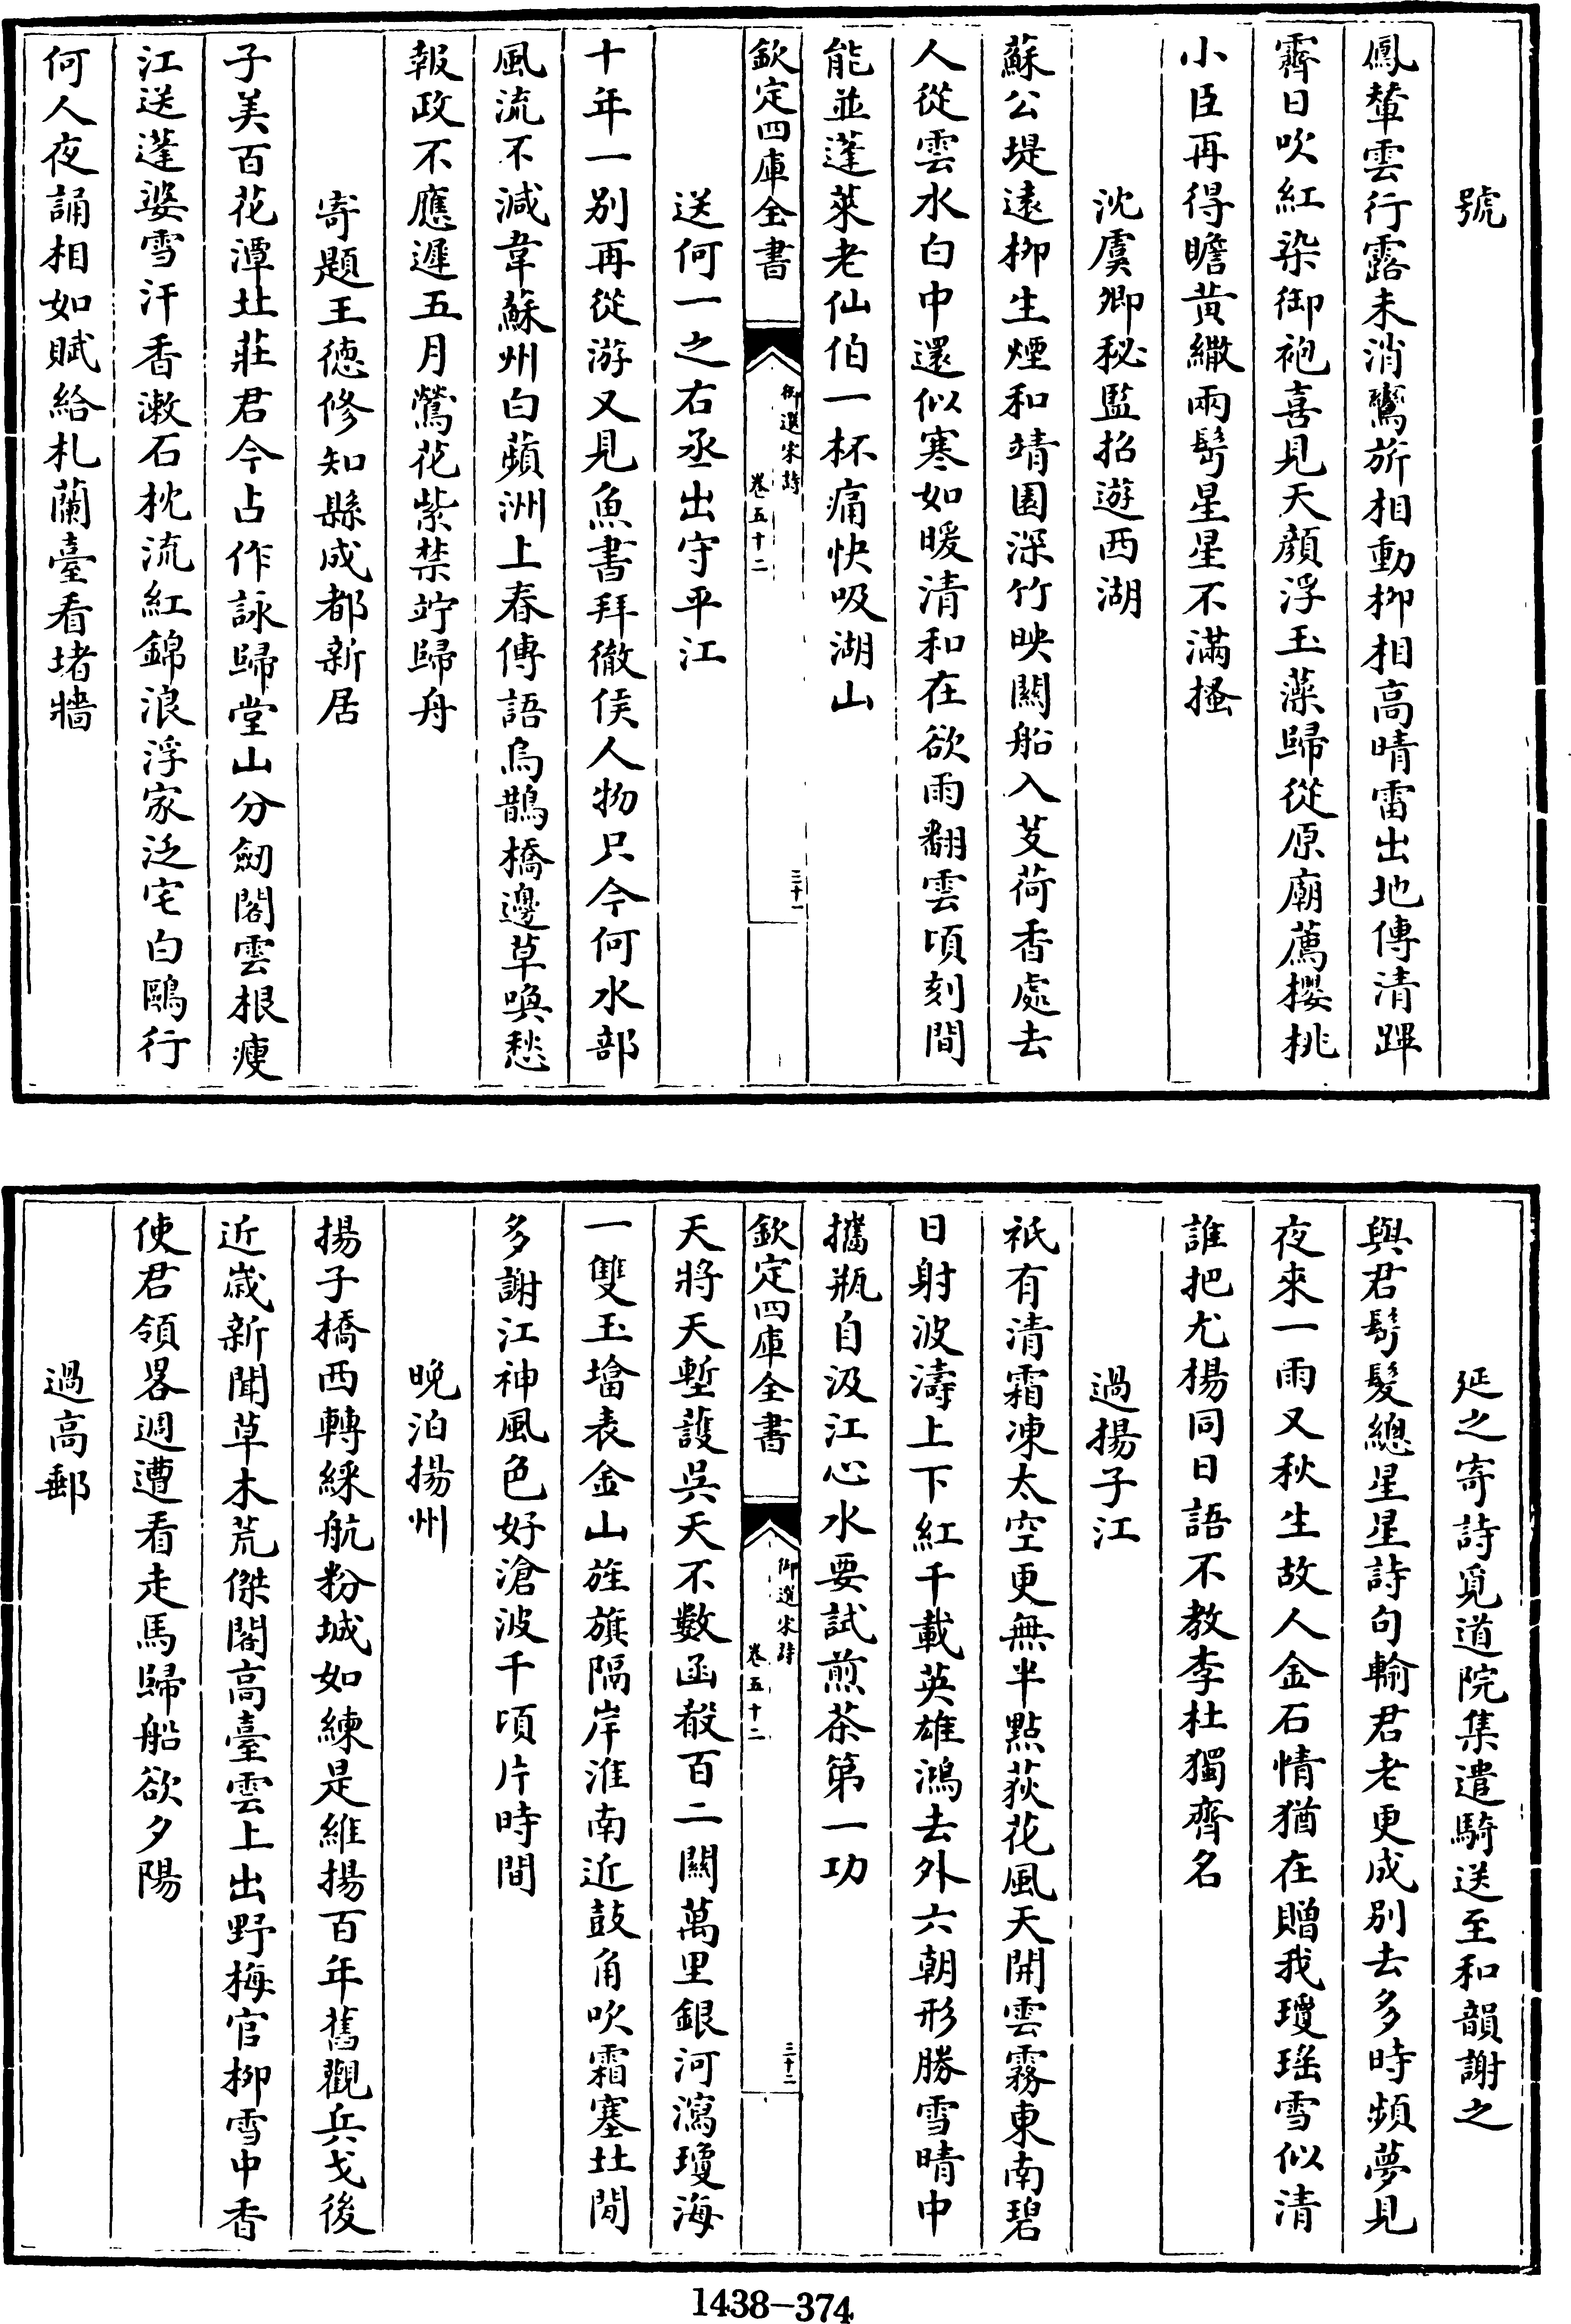 號
鳳輦雲行露未消鸞旂相動栁相高晴雷出地傳清蹕
霽日吹紅染御袍喜見天顔浮玉藻歸從原廟薦櫻桃
小臣再得瞻黃繖兩髩星星不滿搔
沈虞卿秘監招遊西湖
蘇公堤遠栁生煙和靖園深竹映闗船入芰荷香處去
人從雲水白中還似寒如暖清和在欲雨翻雲頃刻間
能並蓬萊老仙伯一杯痛快吸湖山
欽定四庫全書
御選宋詩
卷五十二
三十一
送何一之右丞出守平江
十年一别再從游又見魚書拜徹侯人物只今何水部
風流不減韋蘇州白蘋洲上春傳語烏鵲橋邊草喚愁
報政不應遲五月鶯花紫禁竚歸舟
寄題王徳修知縣成都新居
子美百花潭北莊君今占作詠歸堂山分劒閣雲根痩
江送蓬婆雪汗香漱石枕流紅錦浪浮家泛宅白鷗行
何人夜誦相如賦給札蘭臺看堵牆
延之寄詩覓道院集遣騎送至和韻謝之
與君髩髮總星星詩句輸君老更成别去多時頻夢見
夜來一雨又秋生故人金石情猶在贈我瓊瑤雪似清
誰把尤楊同日語不教李杜獨齊名
過揚子江
祇有清霜凍太空更無半點荻花風天開雲霧東南碧
日射波濤上下紅千載英雄鴻去外六朝形勝雪晴中
攜瓶自汲江心水要試煎茶第一功
欽定四庫全書
御選宋詩
卷五十二
三十二
天將天塹護吳天不數函殽百二闗萬里銀河瀉瓊海
一雙玉墖表金山旌旗隔岸淮南近鼓角吹霜塞北閒
多謝江神風色好滄波千頃片時間
晚泊揚州
揚子橋西轉綵航粉城如練是維揚百年舊觀兵戈後
近嵗新聞草木荒傑閣高臺雲上出野梅官栁雪中香
使君領畧週遭看走馬歸船欲夕陽
過高郵
1438-374